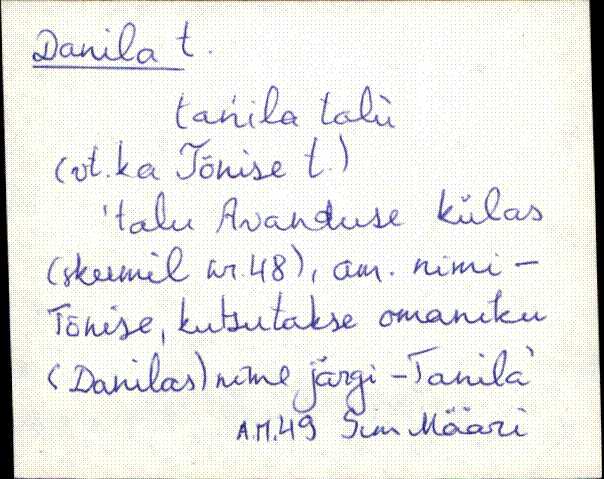 Danila t.
tańila talù
(vt. ka Tõnise t.)
'talu Avanduse külas
(skeemil nr. 48), am. nimi -
Tõnise, kutsutakse omaniku
(Danilas) nime järgi - Tanila'
A.M. 49 Sim Määri